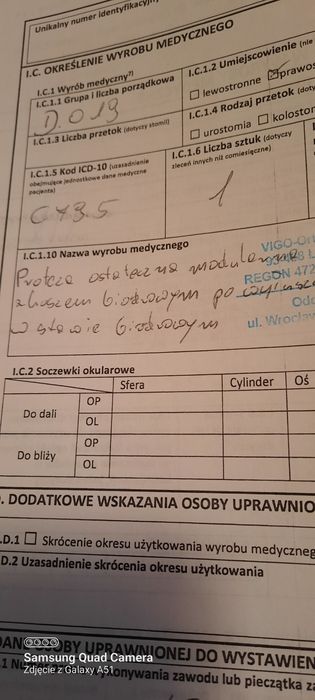 Unikalny numer identyfikacyjny
I.C. OKREŚLENIE WYROBU MEDYCZNEGO
I.C.1 Wyrób medyczny⁷⁾
I.C.1.1 Grupa i liczba porządkowa
D 019
I.C.1.2 Umiejscowienie (nie
lewostronne prawos
I.C.1.3 Liczba przetok (dotyczy stomii)
I.C.1.4 Rodzaj przetok (doty
urostomia kolostom
I.C.1.5 Kod ICD-10 (uzasadnienie
obejmujące jednostkowe dane medyczne
pacjenta)
C43.5
I.C.1.6 Liczba sztuk (dotyczy
zleceń innych niż comiesięczne)
1
I.C.1.10 Nazwa wyrobu medycznego
Proteza ostateczna modularna
z koszem biodrowym po
w stawie biodrowym
VIGO-Ort
REGON 472
Odd
ul. Wrocław
I.C.2 Soczewki okularowe
Sfera Cylinder Oś
Do dali OP
OL
Do bliży OP
OL
. DODATKOWE WSKAZANIA OSOBY UPRAWNIO
.D.1 Skrócenie okresu użytkowania wyrobu medyczneg
.D.2 Uzasadnienie skrócenia okresu użytkowania
Samsung Quad Camera
Zdjęcie z Galaxy A51
DANE OSOBY UPRAWNIONEJ DO WYSTAWIEN
wykonywania zawodu lub pieczątka za